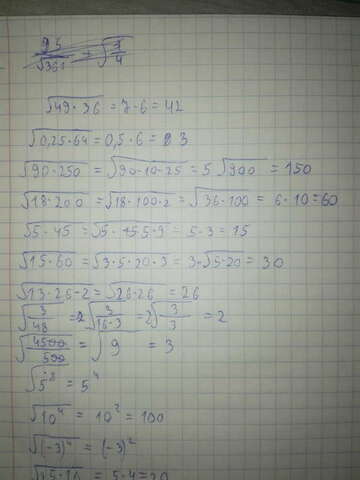 √49·36 = 7·6 = 42
√0,25·64 = 0,5·6 = 3
√90·250 = √90·10·25 = 5 √900 = 150
√18·200 = √18·100·2 = √36·100 = 6·10=60
√5·45 = √5·5·3 = 5·3 = 15
√15·60 = √3·5·20·3 = 3·√5·20 = 30
√13·26·2 = √26·26 = 26
√3/48 = 2√3/16·3 = 2√3/3 = 2
√4500/500 = √9 = 3
√5⁸ = 5⁴
√10⁴ = 10² = 100
√(-3)⁴ = (-3)²
= 5·4=20